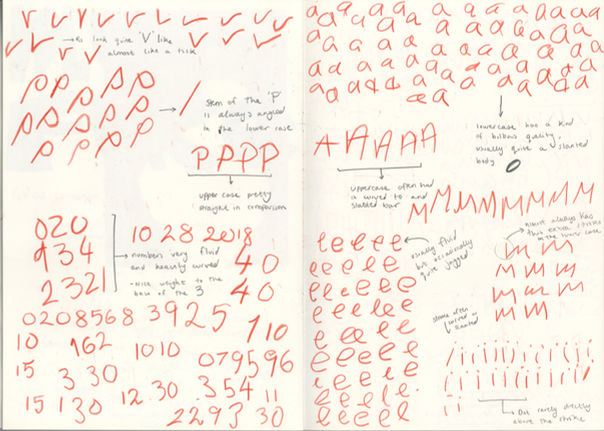 → Rs look quite 'V' like
almost like a tick
P P P P P
P P P P
P P P P
P P P P
stem of the 'P'
is always angled
in the lower case
P P P P
upper case pretty
straight in comparison
020
934
2321
10 28 2018
40
40
→ numbers very fluid
and heavily curved
- nice weight to the
base of the 3
0208568 3925
110
10 162 1010 079596
15 3 30 354 11
15 130 12.30 2293 30
a a a a a a a a a a a
lowercase has a kind
of bulbous quality
usually quite a slanted
body
A A A A A
uppercase often had
a curved to and
slatted bar
M M M M M M M M M
almost always has
this extra strike
in the lower case
m m m
m m m
m m m
m m
e e e e e
usually fluid
but occasionally
quite jagged
e e e e e
e e e e e
e e e e e
e e e e e
e e e e e
e e e e e
e e e e e
e e e e e
stems often
curved or
slanted
i i i i i i i i i i i
i i i i i i i i i i i
i i
Dot rarely directly
above the strike